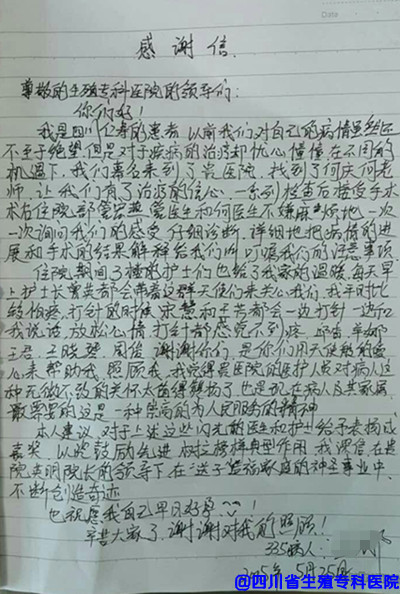 Date
感谢信
尊敬的生殖专科医院的领导们:
你们好!
我是四川仁寿的患者 以前我们对自己的病情虽然还
不至于绝望,但是对于疾病的治疗却忧心 在不同的
机遇下,我们慕名来到了贵医院,找到了何庆何老
师,让我们有了治疗的信心,一系列检查后接受手术
术后住院部 医生和何医生不嫌麻烦地一次
一次询问我们的感受,仔细诊断,详细地把病情的进
展和手术的结果解释给我们听,叮嘱我们的注意事项。
住院期间了 的护士们也给了我家的温暖,每天早
上护士长 都会带着这群天使们来关心我们,我平时比
较怕疼,打针的时候宋慧和王芳都会一边打针一边和
我说话,放松心情打针都感觉不到疼,邱雷
王君、王晓琴、周俊,谢谢你们,是你们用天使般的爱
心来帮助我,照顾我,我觉得贵医院的医护人员对病人这
种无微不致的关怀太值得赞扬了,也是现在病人及其家属
最需要的,这是一种崇高的为人民服务的精神
本人建议,对于上述这些闪光的医生和护士给予表扬或
嘉奖,以此鼓励先进,树立榜样典型作用,我深信在贵
院 院长的领导下在送子 家庭的神圣事业中,
不断创造奇迹
也祝愿我自己早日好孕 !
辛苦大家了,谢谢对我的照顾!
335病人:
5月25日
@四川省生殖专科医院